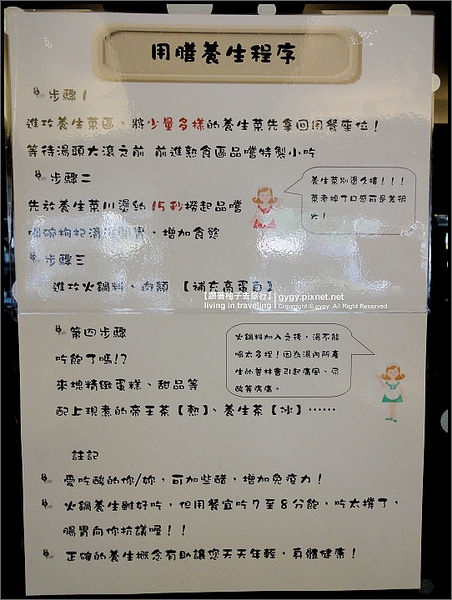 用膳養生程序
步驟1
進攻養生菜區，將少量多樣的養生菜先拿回用餐座位！
等待湯頭大滾之前 前進熟食區品嚐特製小吃
步驟二
養生菜別燙久摟！！！
菜老掉了口感可是差很
大！
先放養生菜川燙約15秒撈起品嚐
喝碗枸杞清湯開胃，增加食慾
步驟三
進攻火鍋料、肉類 【補充高蛋白】
【跟著柚子去旅行】 gygy.pixnet.net
living in traveling Copyright © gygy. All Right Reserved
第四步驟
吃飽了嗎!?
來塊精緻蛋糕、甜品等
配上現煮的帝王茶【熱】、養生茶【冰】……
火鍋料加入之後，湯不能
喝太多捏！因為湯內所產
生的普林會引起痛風、尿
酸等病痛。
註記
愛吃酸的你/妳，可加些醋，增加免疫力！
火鍋養生雖好吃，但用餐宜吃7至8分飽，吃太撐了，
腸胃向你抗議喔！！
正確的養生概念有助讓您天天年輕，身體健康！